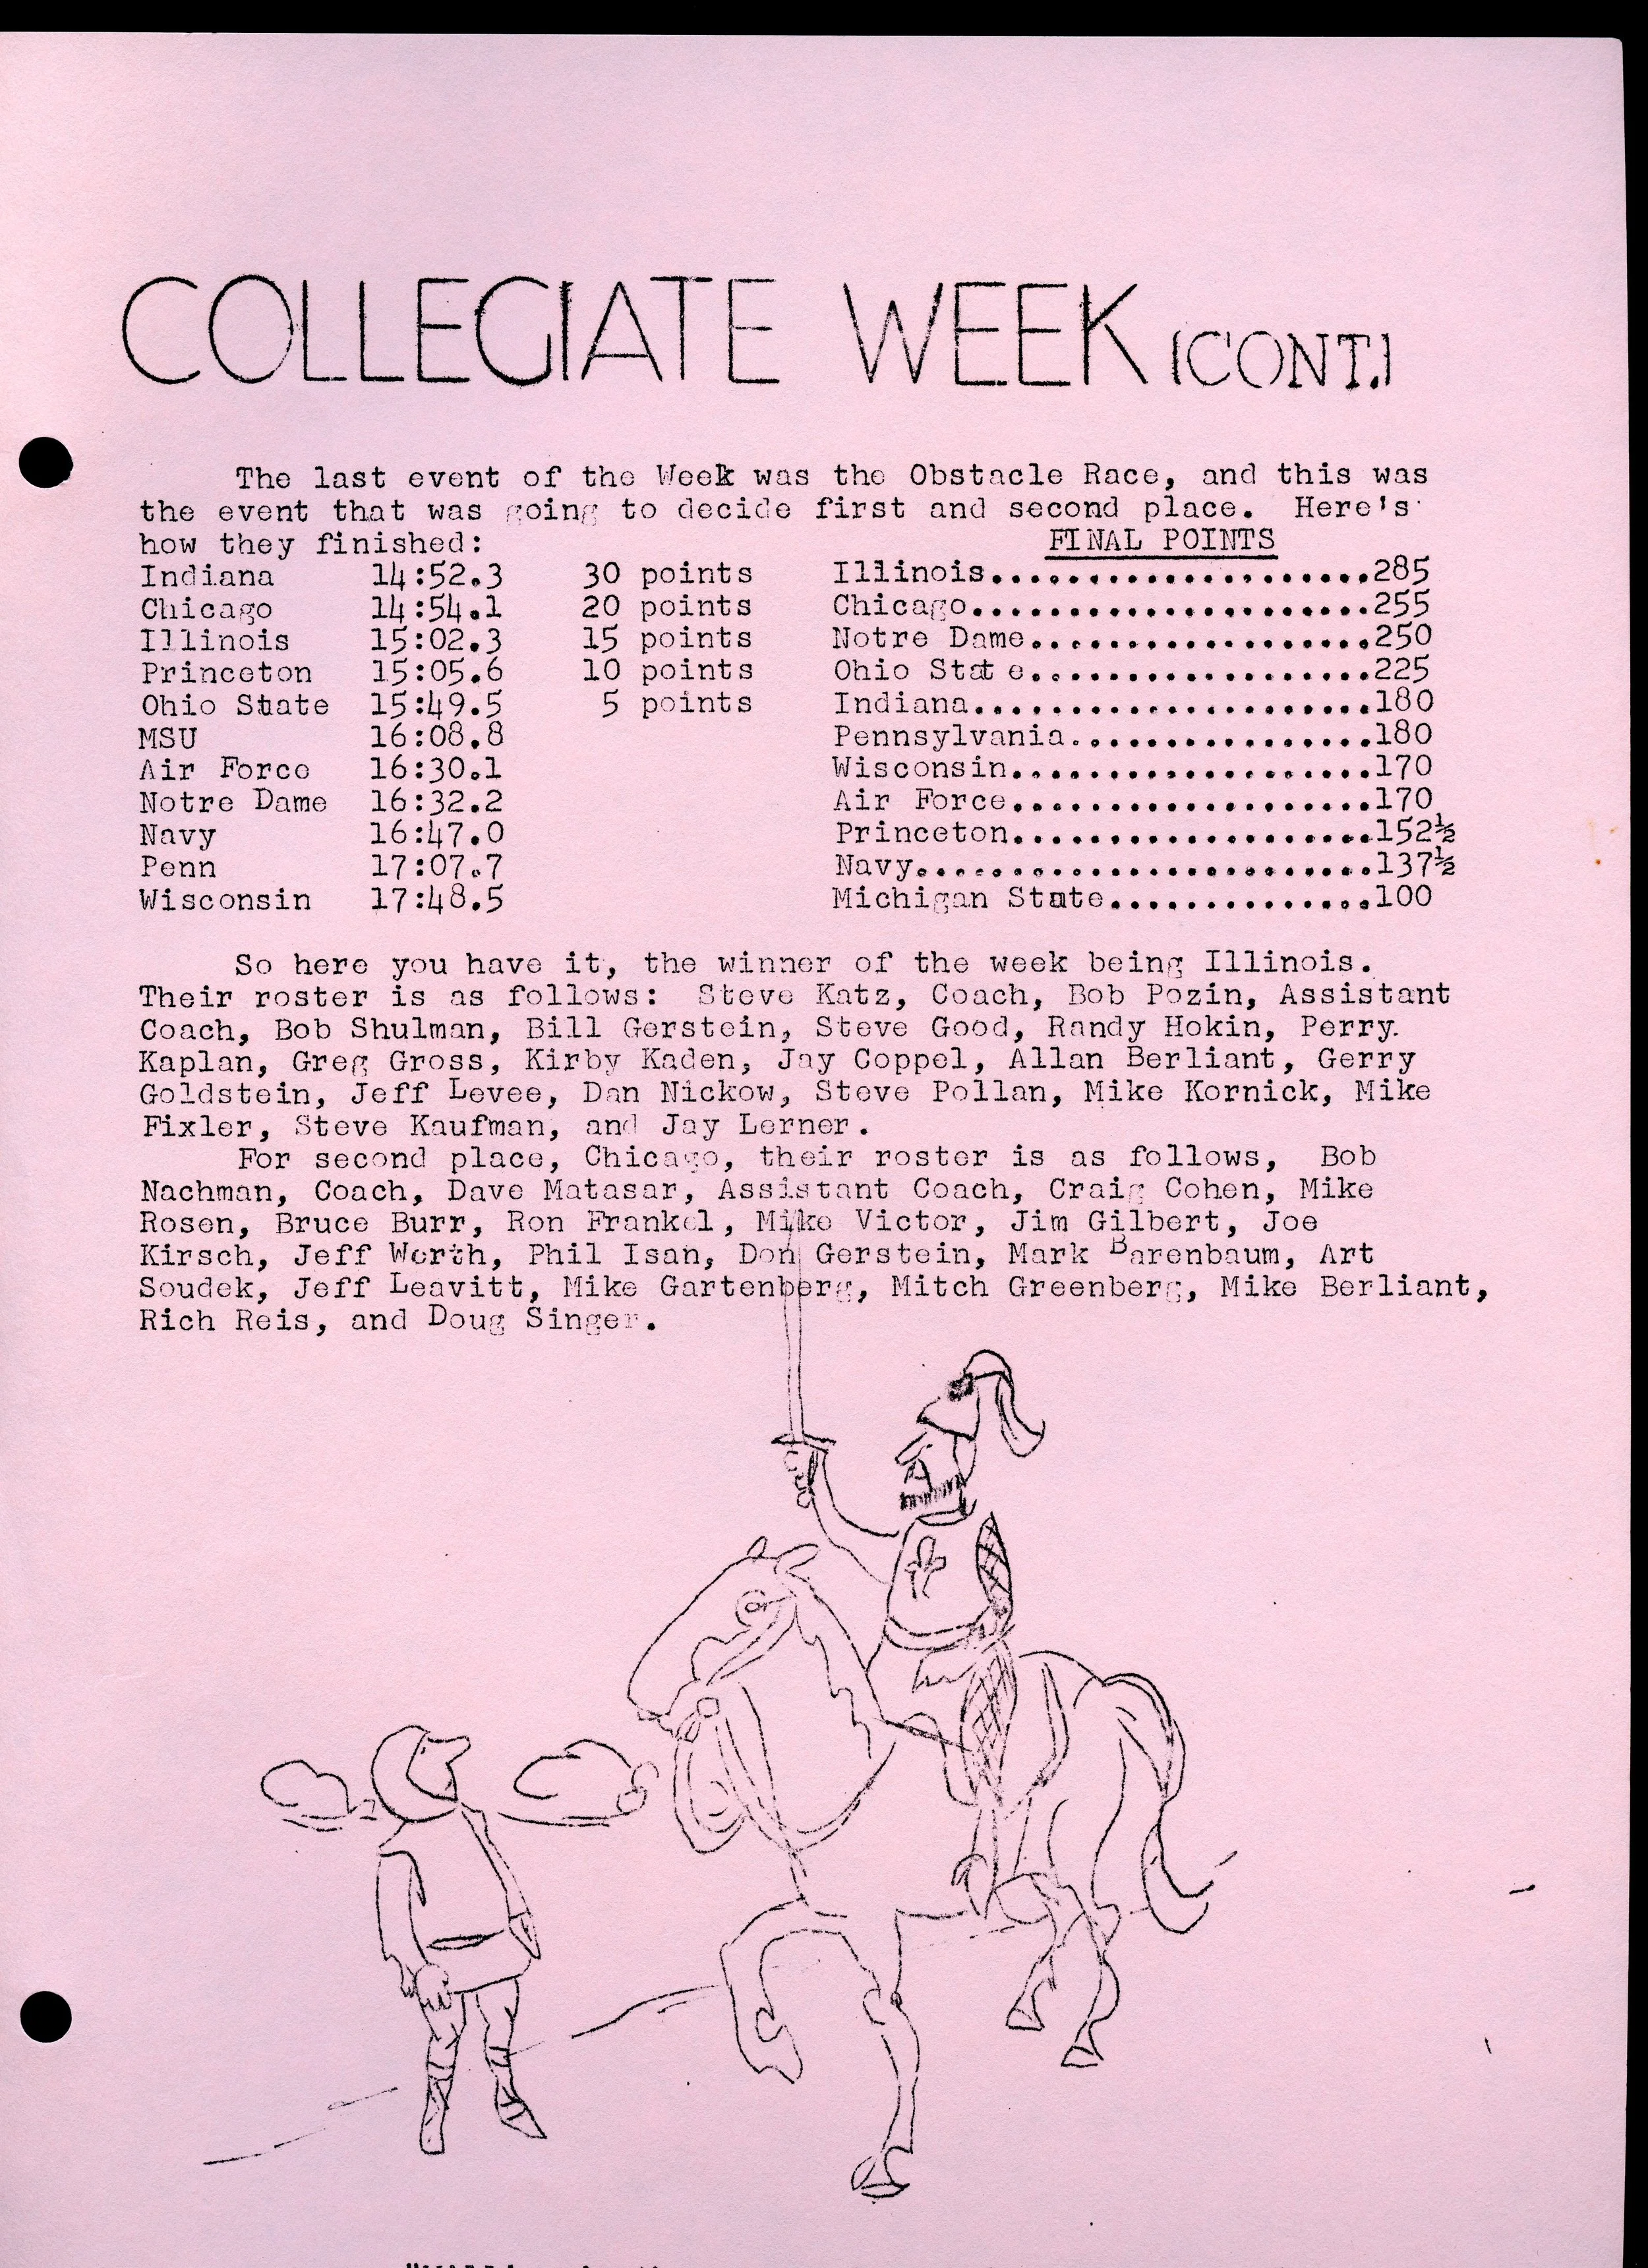 COLLEGIATE WEEK (CONT.)
The last event of the Week was the Obstacle Race, and this was
the event that was going to decide first and second place. Here's
how they finished: FINAL POINTS
Indiana 14:52.3 30 points Illinois....................285
Chicago 14:54.1 20 points Chicago.....................255
Illinois 15:02.3 15 points Notre Dame..................250
Princeton 15:05.6 10 points Ohio State..................225
Ohio State 15:49.5 5 points Indiana.....................180
MSU 16:08.8 Pennsylvania................180
Air Force 16:30.1 Wisconsin...................170
Notre Dame 16:32.2 Air Force...................170
Navy 16:47.0 Princeton...................152½
Penn 17:07.7 Navy........................137½
Wisconsin 17:48.5 Michigan State..............100
So here you have it, the winner of the week being Illinois.
Their roster is as follows: Steve Katz, Coach, Bob Pozin, Assistant
Coach, Bob Shulman, Bill Gerstein, Steve Good, Randy Hokin, Perry
Kaplan, Greg Gross, Kirby Kaden, Jay Coppel, Allan Berliant, Gerry
Goldstein, Jeff Levee, Dan Nickow, Steve Pollan, Mike Kornick, Mike
Fixler, Steve Kaufman, and Jay Lerner.
For second place, Chicago, their roster is as follows, Bob
Nachman, Coach, Dave Matasar, Assistant Coach, Craig Cohen, Mike
Rosen, Bruce Burr, Ron Frankel, Mike Victor, Jim Gilbert, Joe
Kirsch, Jeff Werth, Phil Isan, Don Gerstein, Mark Barenbaum, Art
Soudek, Jeff Leavitt, Mike Gartenberg, Mitch Greenberg, Mike Berliant,
Rich Reis, and Doug Singer.